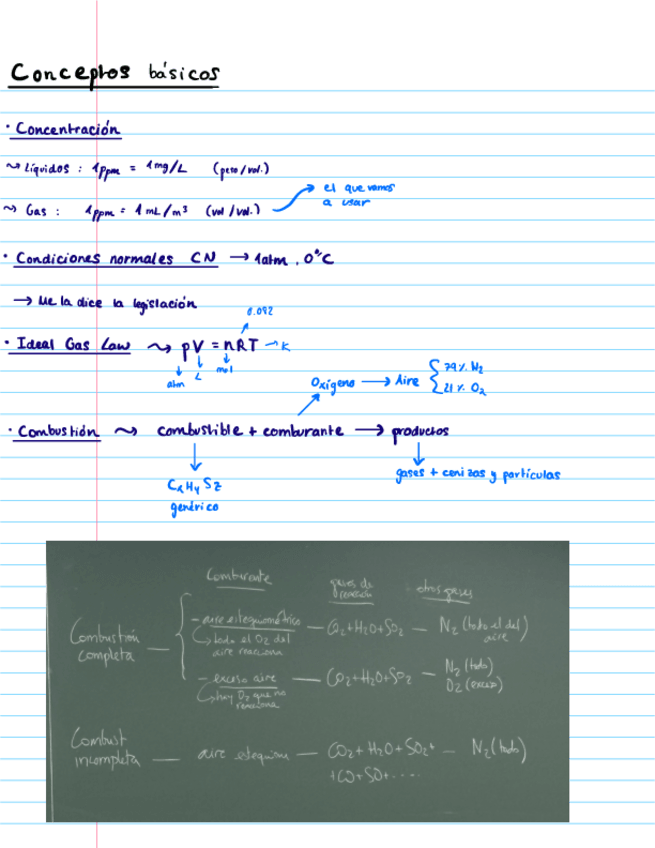 Conceptos básicos
· Concentración
~> Líquidos : 1ppm = 1mg/L (peso/vol.)
~> Gas : 1ppm = 1mL/m³ (vol/vol.) → el que vamos a usar
· Condiciones normales CN → 1atm, 0°C
→ Me la dice la legislación
0.082
· Ideal Gas Law ~> pV = nRT → K
atm L mol
Oxígeno → Aire { 79% N2
21% O2
· Combustión ~> combustible + comburante → productos
CxHySz
genérico
gases + cenizas y partículas
Comburente gases de otros gases
Combustión completa — aire estequiométrico — CO2+H2O+SO2 — N2 (todo el del aire)
↳ todo el O2 del
aire reacciona
— exceso aire — CO2+H2O+SO2 — N2 (todo)
O2 (exceso)
↳ hay O2 que no
reacciona
Combust incompleta — aire estequiom — CO2 + H2O + SO2+ — N2 (todo)
+CO+SO+....